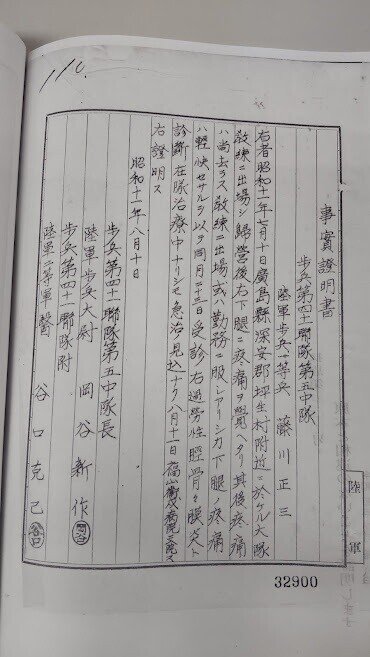 110.
事實證明書
歩兵第四十一聯隊第五中隊
陸軍歩兵一等兵 藤川正三
右者昭和十一年七月十日廣島縣深安郡坪生村附近ニ於ケル大隊
教練ニ出場シ歸營後右下腿ニ疼痛ヲ覺ヘタリ其後疼痛
ハ尚去ラス教練ニ出場或ハ勤務ニ服シアリシカ下腿ノ疼痛
ハ輕快セサルヲ以テ同月二十三日受診右過勞性脛骨々膜炎ト
診斷在隊治療中ナリシモ急治ノ見込ナク八月十一日福山衛戍病院ニ入院ス
右證明ス
昭和十一年八月十日
歩兵第四十一聯隊第五中隊長
陸軍歩兵大尉 岡谷新作
歩兵第四十一聯隊附
陸軍一等軍醫 谷口克己
陸軍
32900